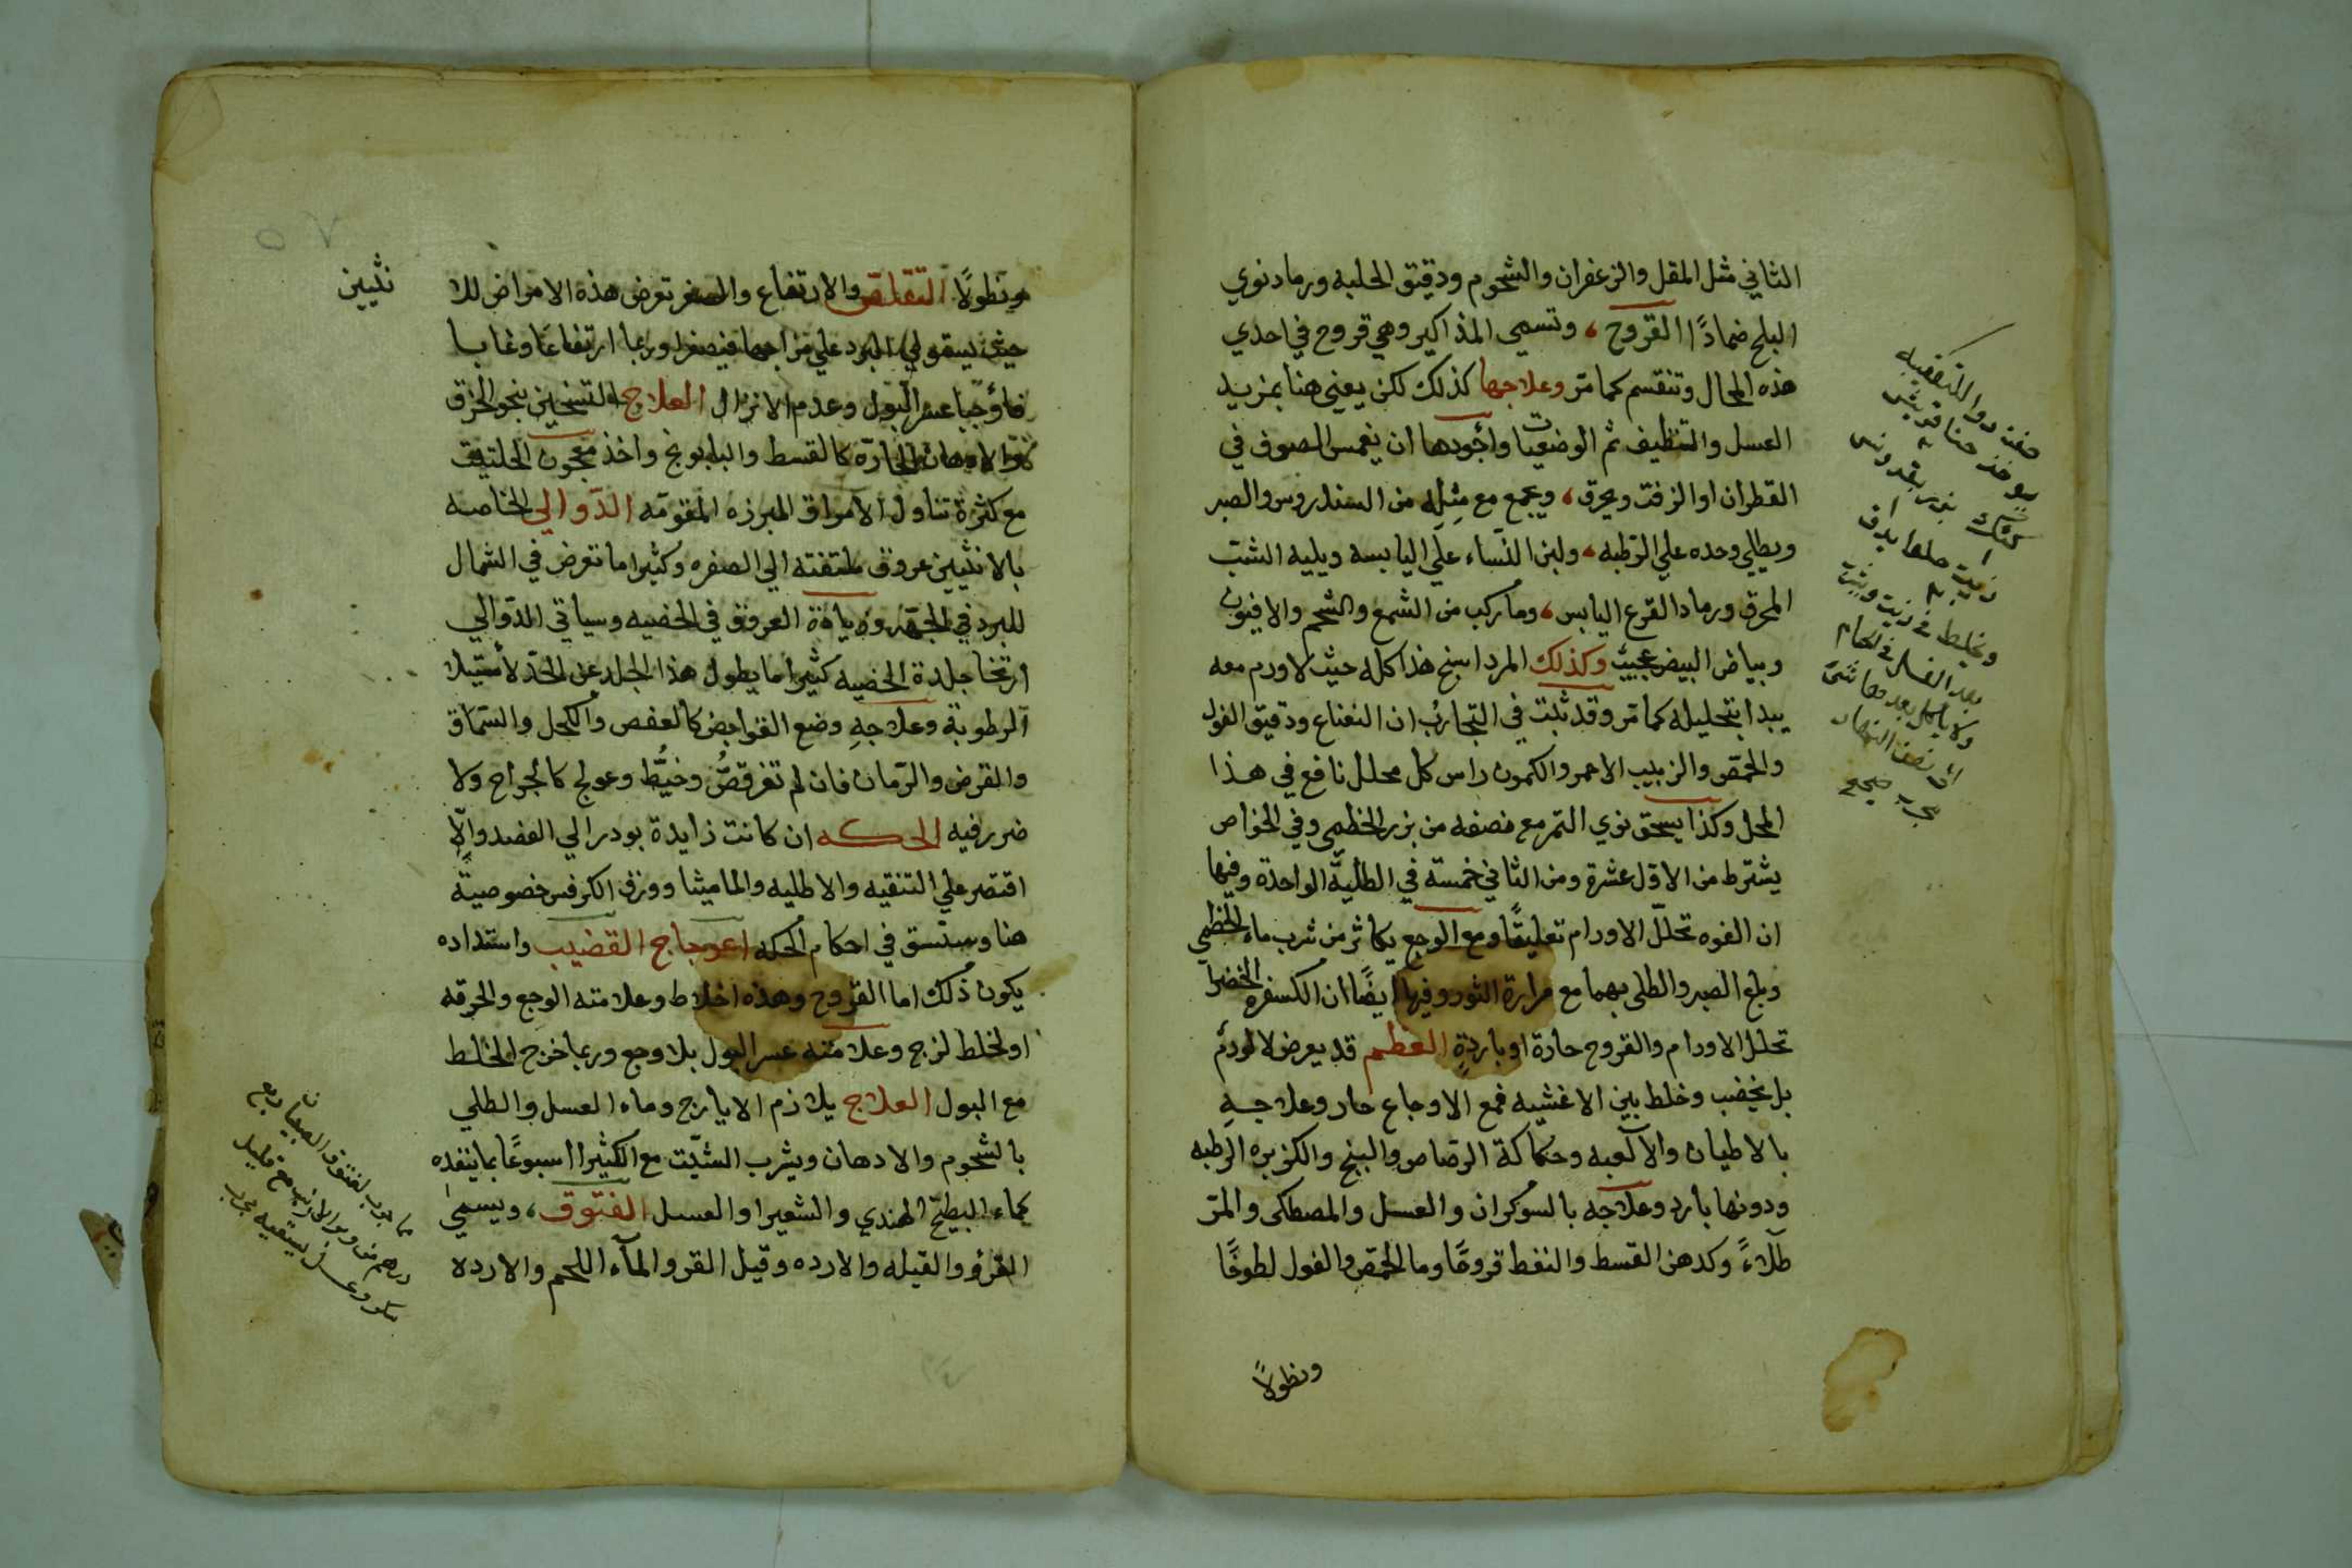 الثاني مثل المقل والزعفران والشحوم ودقيق الحلبه ورماد نوي
البلح ضمادًا القروح، وتسمي المذاكير وهي قروح في احدي
هذه المحال وتنقسم كما مرّ وعلاجها كذلك لكن يعني هنا بمزيد
الغسل والتنظيف ثم الوضعيات وأجودها ان يغمس الصوف في
القطران او الزفت ويحرق، ويجمع مع مثله من السندروس والصبر
ويطلي وحده علي الرّطبه، ولبن النّساء علي اليابسه ويليه الشبّ
المحرق ورماد القرع اليابس، وما ركب من الشمع والشحم والافيون
وبياض البيض عجيبٌ وكذلك المرداسنج هذا كله حيث لا ورم معه
يبدا بتحليله كما مرّ وقد ثبت في التجارب ان النعناع ودقيق الفول
والحمّص والزبيب الاحمر والكمون راس كل محلل نافع في هذا
المحل وكذا يسحق نوي التمر مع نصفه من بزر الخطمي وفي الخواص
يشترط من الاوّل عشرة ومن الثاني خمسة في الطليّة الواحدة وفيها
ان الفوه تحلّل الاورام تعليقًا ومع الوجع يكاثر من شرب ماء الخطمي
وبلع الصبر والطلي بهما مع مرارة الثور وفيها ايضًا ان الكسفره الخضرا
تحلل الاورام والقروح حارة او باردةٍ العظم قد يعرض لا لورمٌ
بل لخصب وخلط بين الاغشيه فمع الاوجاع حار وعلاجهِ
بالاطيان والالعبه وحكّاكة الرّصاص والبنج والكزبره الرّطبه
ودونها بارد وعلاجه بالسوكران والعسل والمصطكي والمرّ
طلاءً وكدهن القسط والنفط قروحًا وما الحمّص والفول لطوخًا
ونطولاً
صفت دوا للتصفيه
يوخذ حنا قريش
بزر بقدونس
زبيب
ويخلط في زيت
بعد الغسل في الحمام
ولا ياكل بعدها شيّ
الي نصف النهار
مجرب صحيح
ونطولًا التقلّص والارتفاع والصغر تعرض هذه الامراض للا
نثيين
حيث يستولي البرد علي مزاجهما فيصغرا وربما ارتفاعًا وغابا
فاوجبا عسر البول وعدم الانزال العلاج التسخين بنحو الخرق
والادهان الحارّة كالقسط والبابونج واخذ معجون الحلتيت
مع كثرة تناول الامراق المبرزه المقومّه الدّوالي الخاصه
بالانثيين عروق ملتفته الي الصفره وكثيرا ما تعرض في الشمال
للبرد في الجهه وزيادة العروق في الخصيه وسياتي الدّوالي
ارتخا جلدة الخصيه كثيرا ما يطول هذا الجلد عن الحدّ لأستيلا
الرطوبة وعلاجهِ وضع القوابض كالعفص والكحل والسّماق
والقرض والرّمان فان لم تغر قصُّ وخيُّط وعولج كالجراح ولا
ضرر فيه الحكه ان كانت زايدة بودر الي الفصد والّا
اقتصر علي التنقيه والاطليه والماميثا وورق الكرفس خصوصيّة
هنا وسبتسق في احكام الحكه اعوجاج القضيب واستداده
يكون ذلك اما القروح وهذه اخلاط وعلامته الوجع والحرقه
او لخلط لزج وعلامته عسر البول بلا وجع وربما خرج الخلط
مع البول العلاج يلازم الايارج وماء العسل والطلي
بالشحوم والادهان ويشرب الشبّت مع الكثيرا اسبوعًا بما ينفده
كماء البطيّخ الهندي والشعير او العسل الفتوق، ويسمي
القرؤ والقيله والارده وقيل القرو المآء اللحم والارده
مما جرب لفتوق الصبيان ربع
درهم من وبر الارنب مع قليل
سكر وعسل يستقيه مجرب